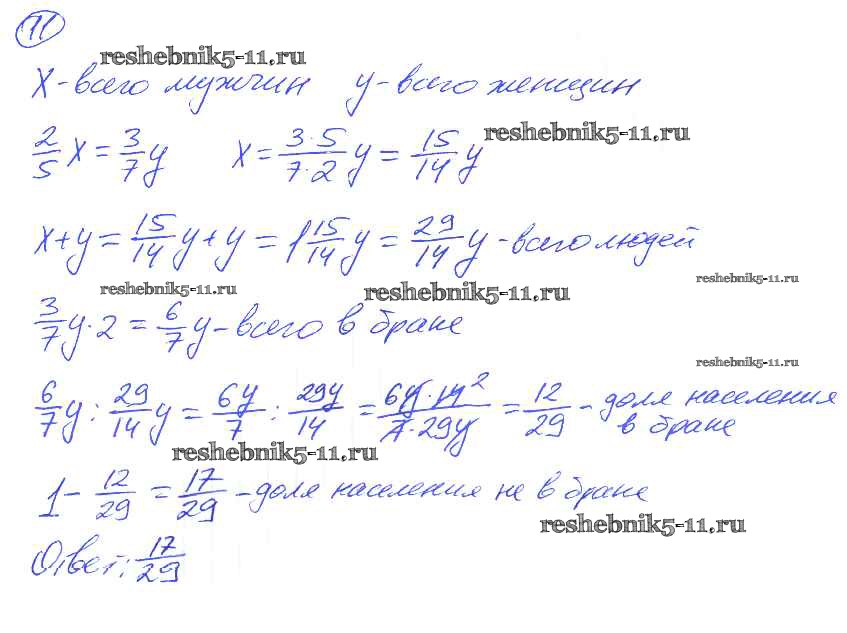 11
reshebnik5-11.ru
x - всего мужчин y - всего женщин
reshebnik5-11.ru
2/5 x = 3/7 y x = 3·5/7·2 y = 15/14 y
x + y = 15/14 y + y = 1 15/14 y = 29/14 y - всего людей
reshebnik5-11.ru
reshebnik5-11.ru reshebnik5-11.ru
3/7 y · 2 = 6/7 y - всего в браке
reshebnik5-11.ru
6/7 y : 29/14 y = 6y/7 : 29y/14 = 6y·14 2/7·29y = 12/29 - доля населения
в браке
reshebnik5-11.ru
1 - 12/29 = 17/29 - доля населения не в браке
reshebnik5-11.ru
Ответ: 17/29